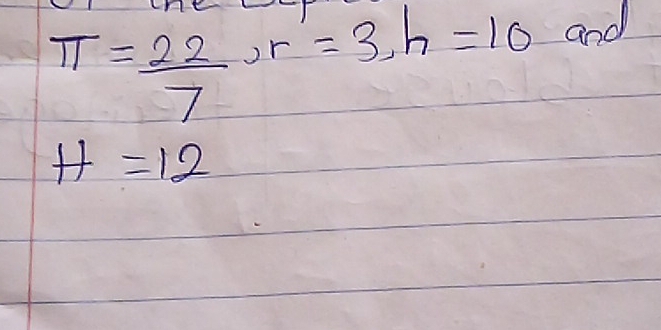 the
π = 22/7, r = 3, h = 10 and
H = 12